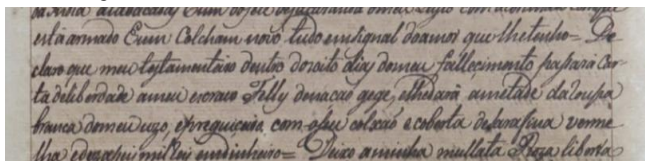 está armado Eum Colcham novo tudo em signal do amor que lhe tenho = De
claro que meu testamenteiro dentro de oito dias do meu faillecimento passará Car
ta de liberdade a meu escravo Felly de nacaõ gege, elhe dará ametade da roupa
branca do meu uzo, epreguiceiro, com o seu colxaõ e coberta de Sarafina verme
lha e dezaseis mil reis em dinheiro = Deixo a minha mullata Roza liberta